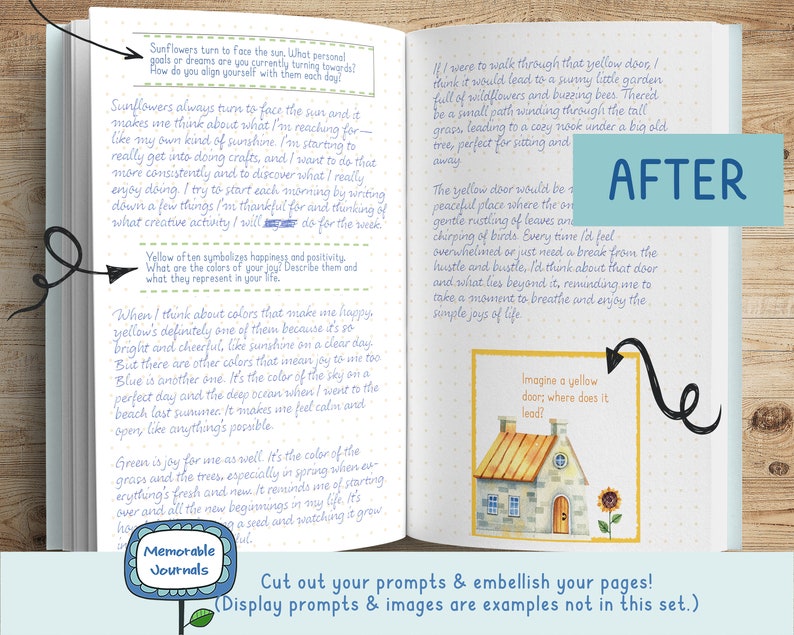 Sunflowers turn to face the sun. What personal
goals or dreams are you currently turning towards?
How do you align yourself with them each day?
Sunflowers always turn to face the sun and it
makes me think about what I'm reaching for—
like my own kind of sunshine. I'm starting to
really get into doing crafts, and I want to do that
more consistently and to discover what I really
enjoy doing. I try to start each morning by writing
down a few things I'm thankful for and thinking of
what creative activity I will do for the week.
Yellow often symbolizes happiness and positivity.
What are the colors of your joy? Describe them and
what they represent in your life.
When I think about colors that make me happy,
yellow's definitely one of them because it's so
bright and cheerful, like sunshine on a clear day.
But there are other colors that mean joy to me too.
Blue is another one. It's the color of the sky on a
perfect day and the deep ocean when I went to the
beach last summer. It makes me feel calm and
open, like anything's possible.
Green is joy for me as well. It's the color of the
grass and the trees, especially in spring when ev-
erything's fresh and new. It reminds me of starting
over and all the new beginnings in my life. It's
a seed and watching it grow
If I were to walk through that yellow door, I
think it would lead to a sunny little garden
full of wildflowers and buzzing bees. There'd
be a small path winding through the tall
grass, leading to a cozy nook under a big old
tree, perfect for sitting and
away.
The yellow door would be
peaceful place where the
gentle rustling of leaves and
chirping of birds. Every time I'd feel
overwhelmed or just need a break from the
hustle and bustle, I'd think about that door
and what lies beyond it, reminding me to
take a moment to breathe and enjoy the
simple joys of life.
AFTER
Imagine a yellow
door; where does it
lead?
Memorable
Journals
Cut out your prompts & embellish your pages!
(Display prompts & images are examples not in this set.)